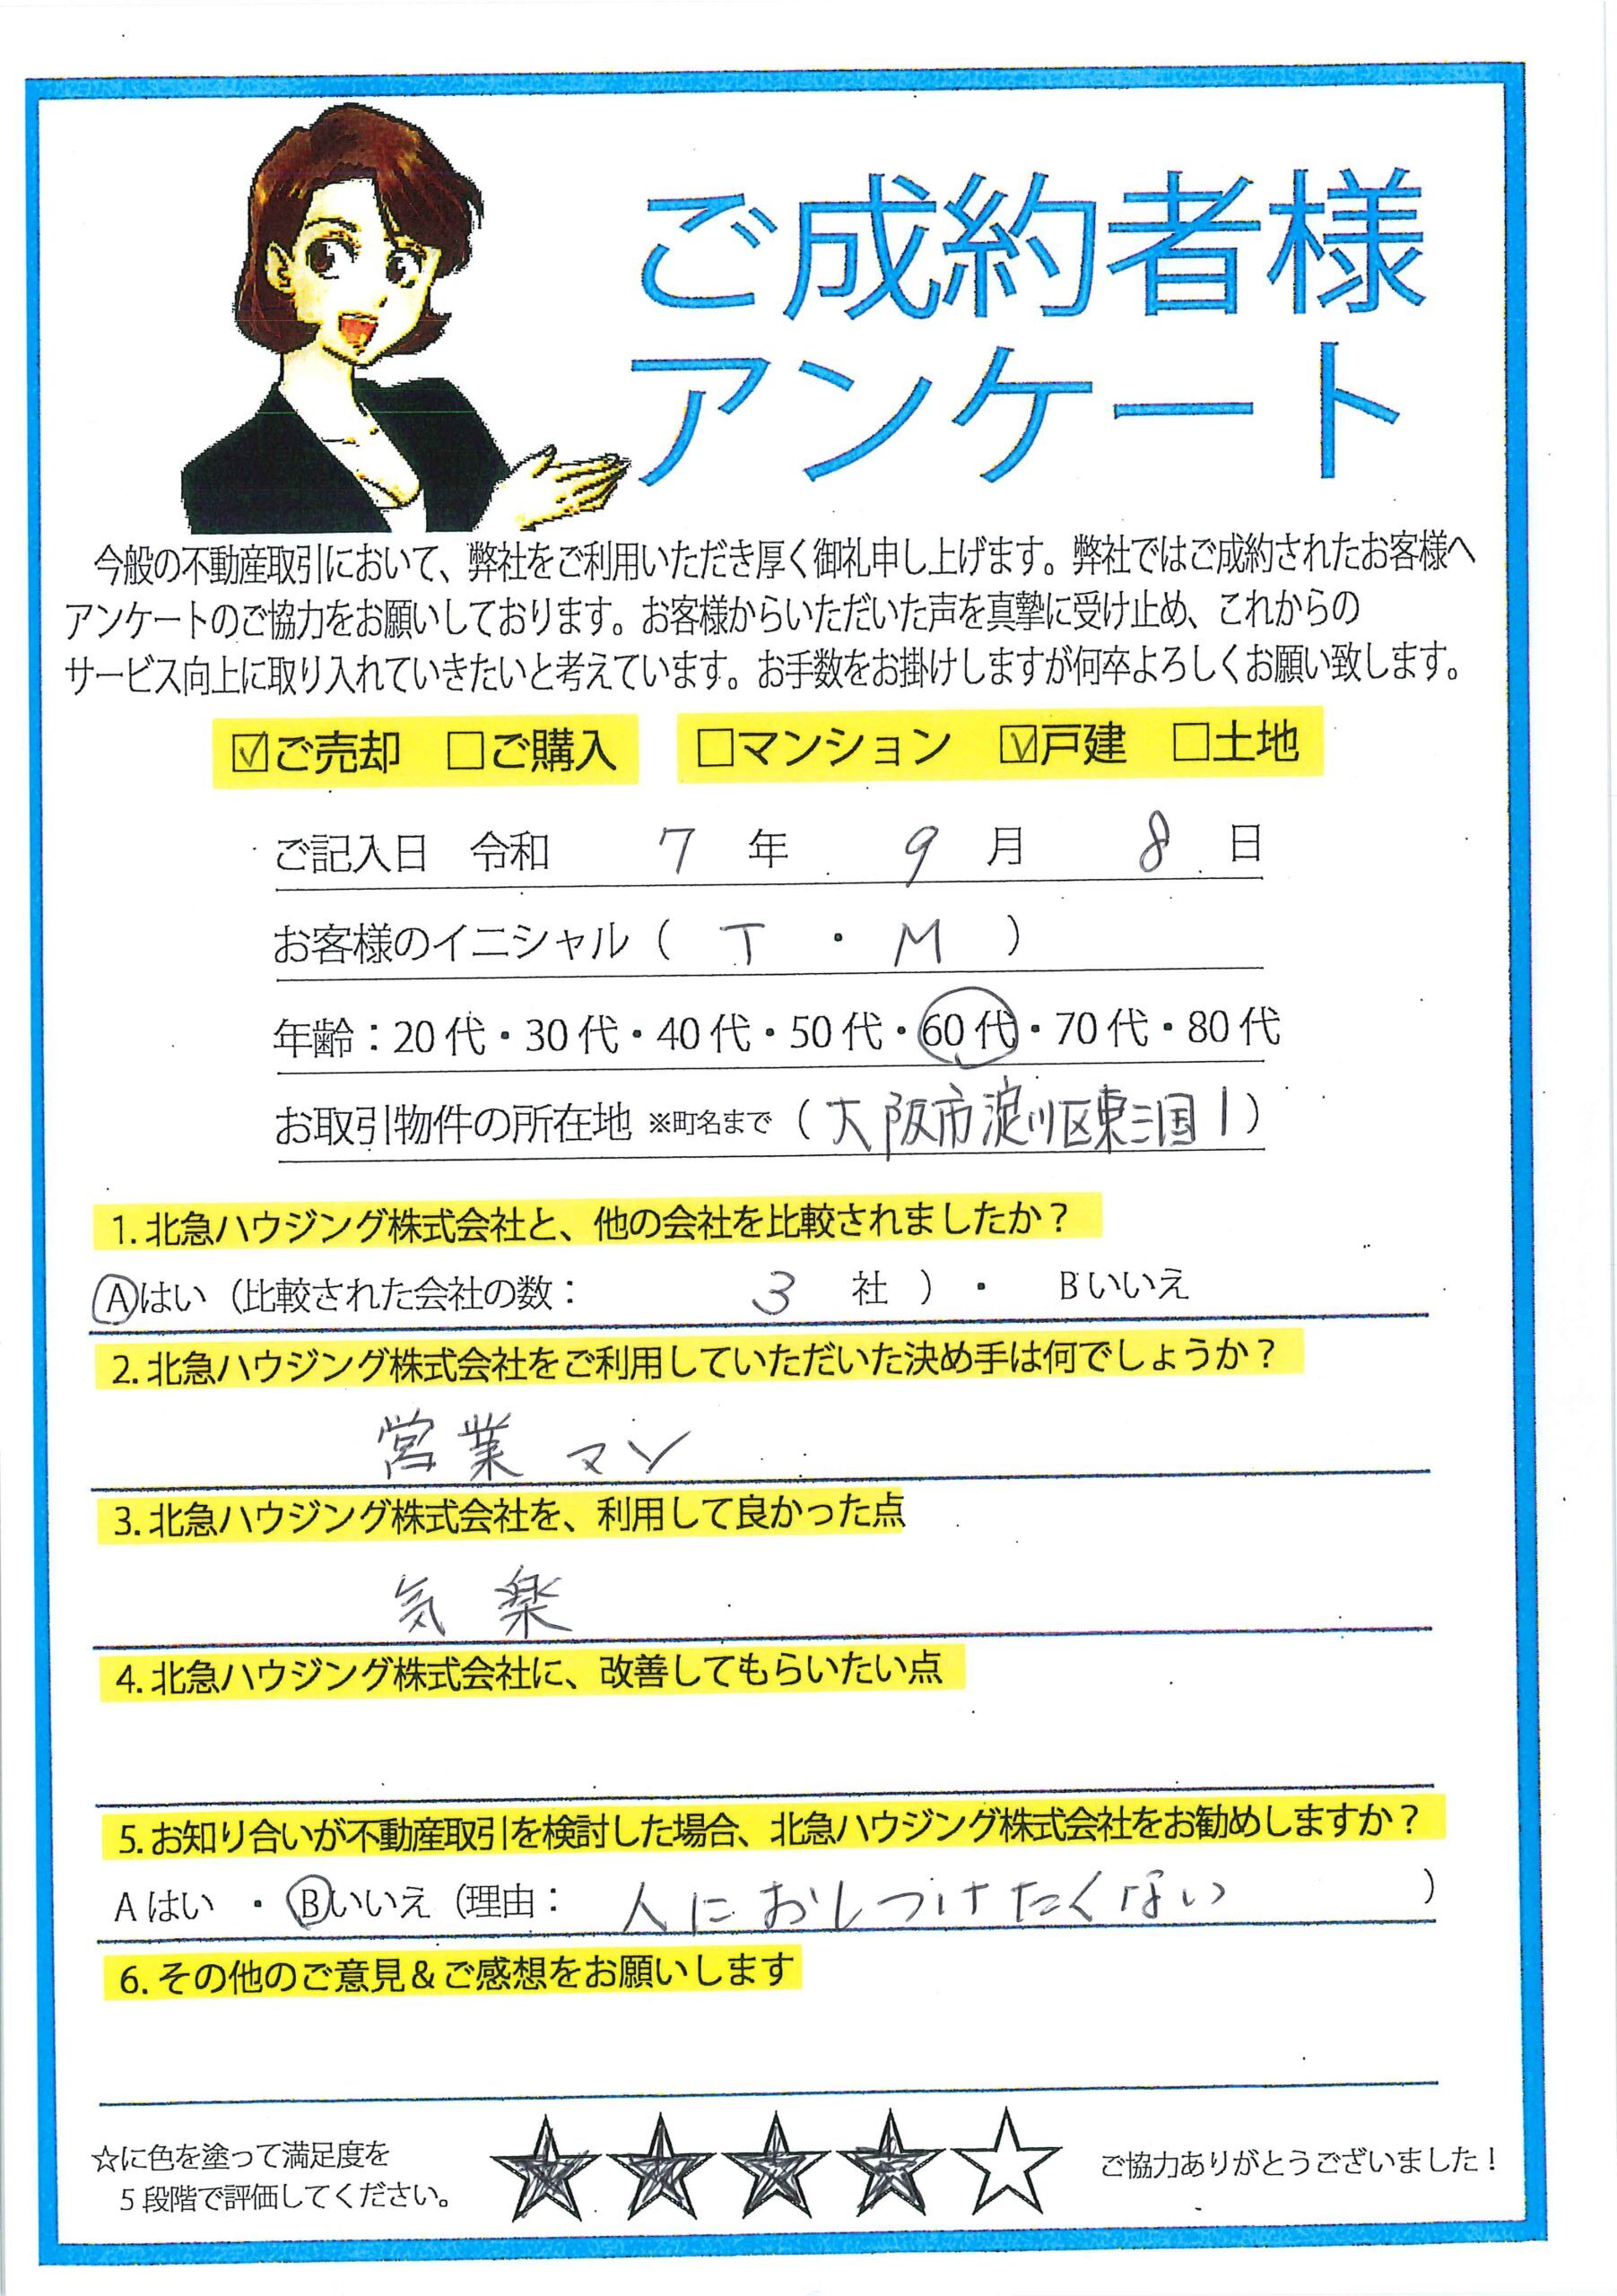 ご成約者様
アンケート
今般の不動産取引において、弊社をご利用いただき厚く御礼申し上げます。弊社ではご成約されたお客様へ
アンケートのご協力をお願いしております。お客様からいただいた声を真摯に受け止め、これからの
サービス向上に取り入れていきたいと考えています。お手数をお掛けしますが何卒よろしくお願い致します。
☑ご売却 □ご購入 □マンション ☑戸建 □土地
ご記入日 令和 7 年 9 月 8 日
お客様のイニシャル ( T ・ M )
年齢：20代・30代・40代・50代・60代・70代・80代
お取引物件の所在地 ※町名まで (大阪市淀川区東三国1)
1. 北急ハウジング株式会社と、他の会社を比較されましたか？
Aはい (比較された会社の数： 3 社 ) ・ Bいいえ
2. 北急ハウジング株式会社をご利用していただいた決め手は何でしょうか？
営業マン
3. 北急ハウジング株式会社を、利用して良かった点
気楽
4. 北急ハウジング株式会社に、改善してもらいたい点
5. お知り合いが不動産取引を検討した場合、北急ハウジング株式会社をお勧めしますか？
Aはい ・ Bいいえ (理由： 人におしつけたくない )
6. その他のご意見＆ご感想をお願いします
☆に色を塗って満足度を
5段階で評価してください。
★★★★☆
ご協力ありがとうございました！